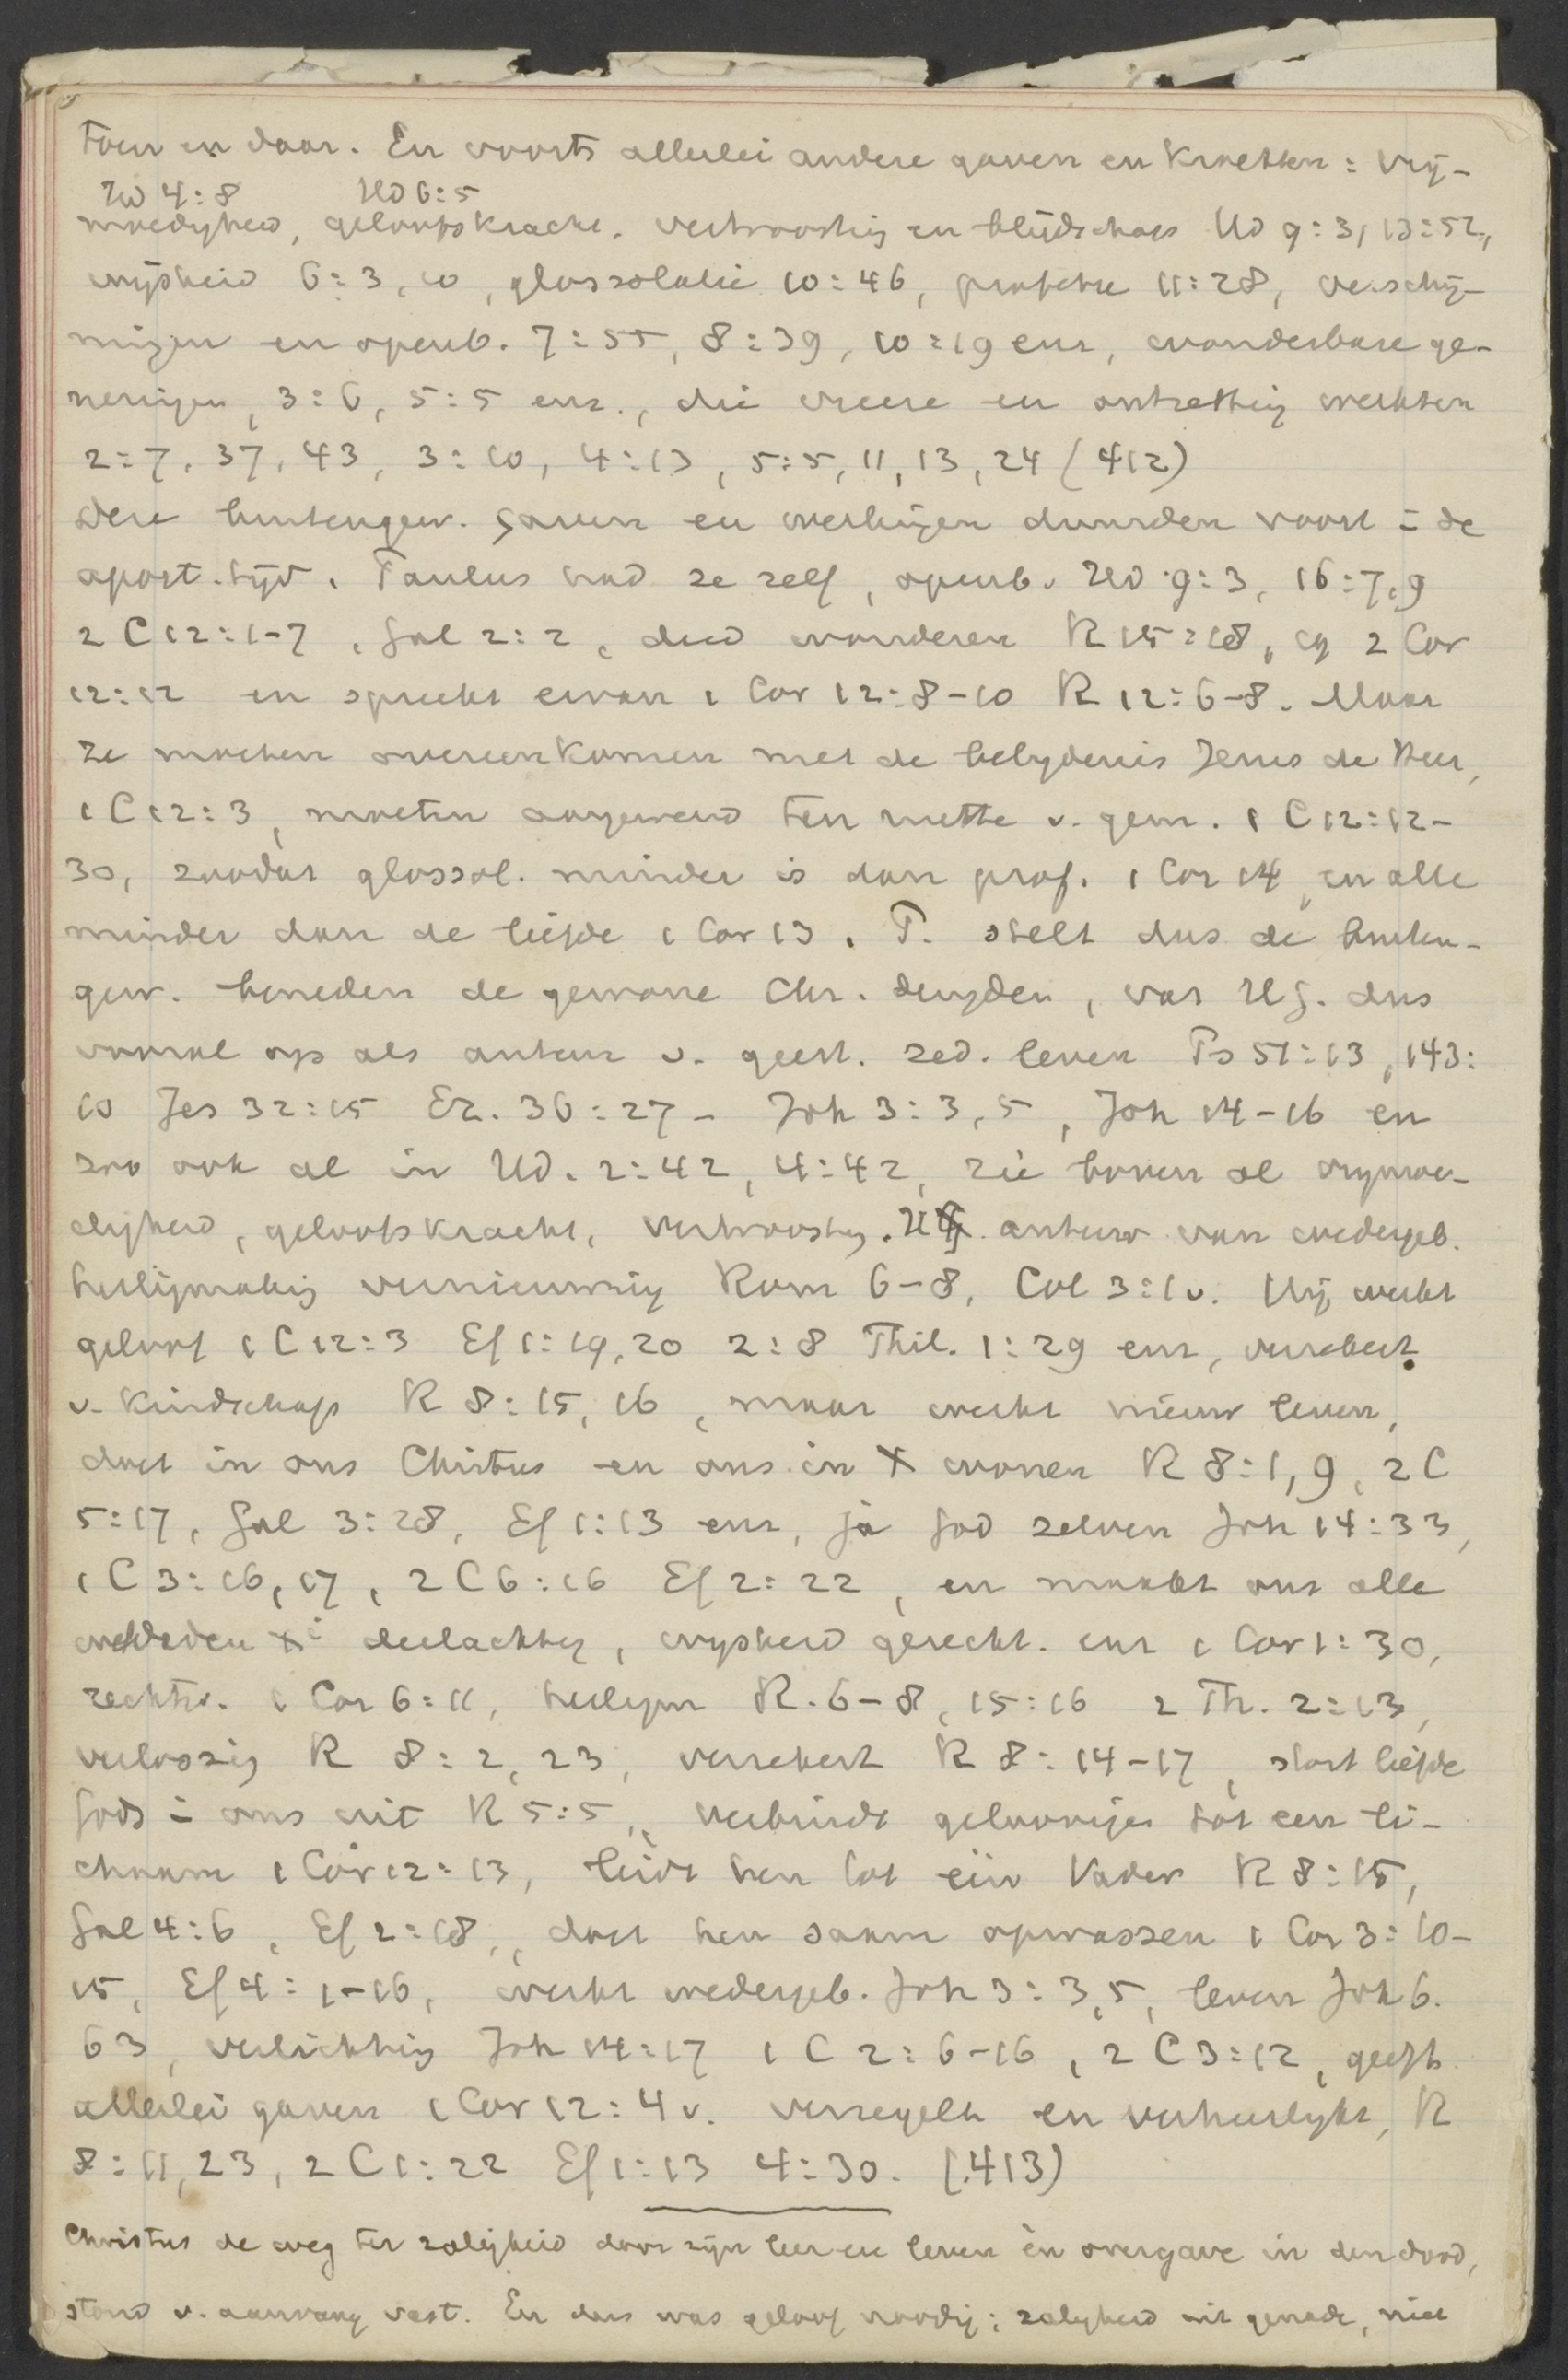 toen en daar. En voorts allerlei andere gaven en krachten: vrij-
HD 4:8 HD 6:5
moedigheid, geloofskracht. vertroosting en blijdschap HD 9:31, 13:52,
wijsheid 6:3, 10, glossolalie 10:46, profetie 11:28, verschij-
ningen en openb. 7:55, 8:39, 10:19 enz, wonderbare ge-
nezingen, 3:6, 5:5 enz., die vreeze en ontzetting wekten
2:7, 37, 43, 3:10, 4:13, 5:5, 11, 13, 24 (412)
Deze buitengew. gaven en werkingen duurden voort i de
apost. tijd. Paulus had ze zelf, openb. HD 9:3, 16:7,9
2 C 12:1-7, Gal 2:2, deed wonderen R 15:18, cf 2 Cor
12:12 en spreekt ervan 1 Cor 12:8-10 R 12:6-8. Maar
ze moeten overeenkomen met de belijdenis Jezus de Heer,
1 C 12:3, moeten aangewend ten nutte v. gem. 1 C 12:12-
30, zoodat glossol. minder is dan prof. 1 Cor 14, en alle
minder dan de liefde 1 Cor 13. P. stelt dus de buiten-
gew. beneden de gewone Chr. deugden, vat HG. dus
vooral op als auteur v. geest. zed. leven Ps 51:13, 143:
10 Jes 32:15 Ez. 36:27 - Joh 3:3,5, Joh 14-16 en
zoo ook al in HD. 2:42, 4:42, zie boven al vrijmoe-
digheid, geloofskracht, vertroosting. HG. auteur van wedergeb.
heiligmaking vernieuwing Rom 6-8, Col 3:1v. Hij werkt
geloof 1 C 12:3 Ef 1:19,20 2:8 Phil. 1:29 enz, verzekert
v. kindschap R 8:15, 16, maar werkt nieuw leven,
doet in ons Christus en ons in X wonen R 8:1, 9, 2 C
5:17, Gal 3:28, Ef 1:13 enz, ja God zelven Joh 14:33,
1 C 3:16, 17, 2 C 6:16 Ef 2:22, en maakt ons alle
weldaden X i deelachtig, wijsheid gerecht. enz 1 Cor 1:30,
rechtv. 1 Cor 6:11, heiligm R. 6-8, 15:16 2 Th. 2:13,
verlossing R 8:2, 23, verzekert R 8:14-17, stort liefde
Gods i ons uit R 5:5, verbindt geloovigen tot een li-
chaam 1 Cor 12:13, leidt hen tot één Vader R 8:15,
Gal 4:6, Ef 2:18, doet hen saam opwassen 1 Cor 3:10-
15, Ef 4:1-16, werkt wedergeb. Joh 3:3,5, leven Joh 6.
63, verlichting Joh 14:17 1 C 2:6-16, 2 C 3:12, geeft
allerlei gaven 1 Cor 12:4v. verzegelt en verheerlijkt, R
8:11, 23, 2 C 1:22 Ef 1:13 4:30. (413)
Christus de weg ter zaligheid door zijn leer en leven èn overgave in den dood,
stond v. aanvang vast. En dus was geloof noodig; zaligheid uit genade, niet